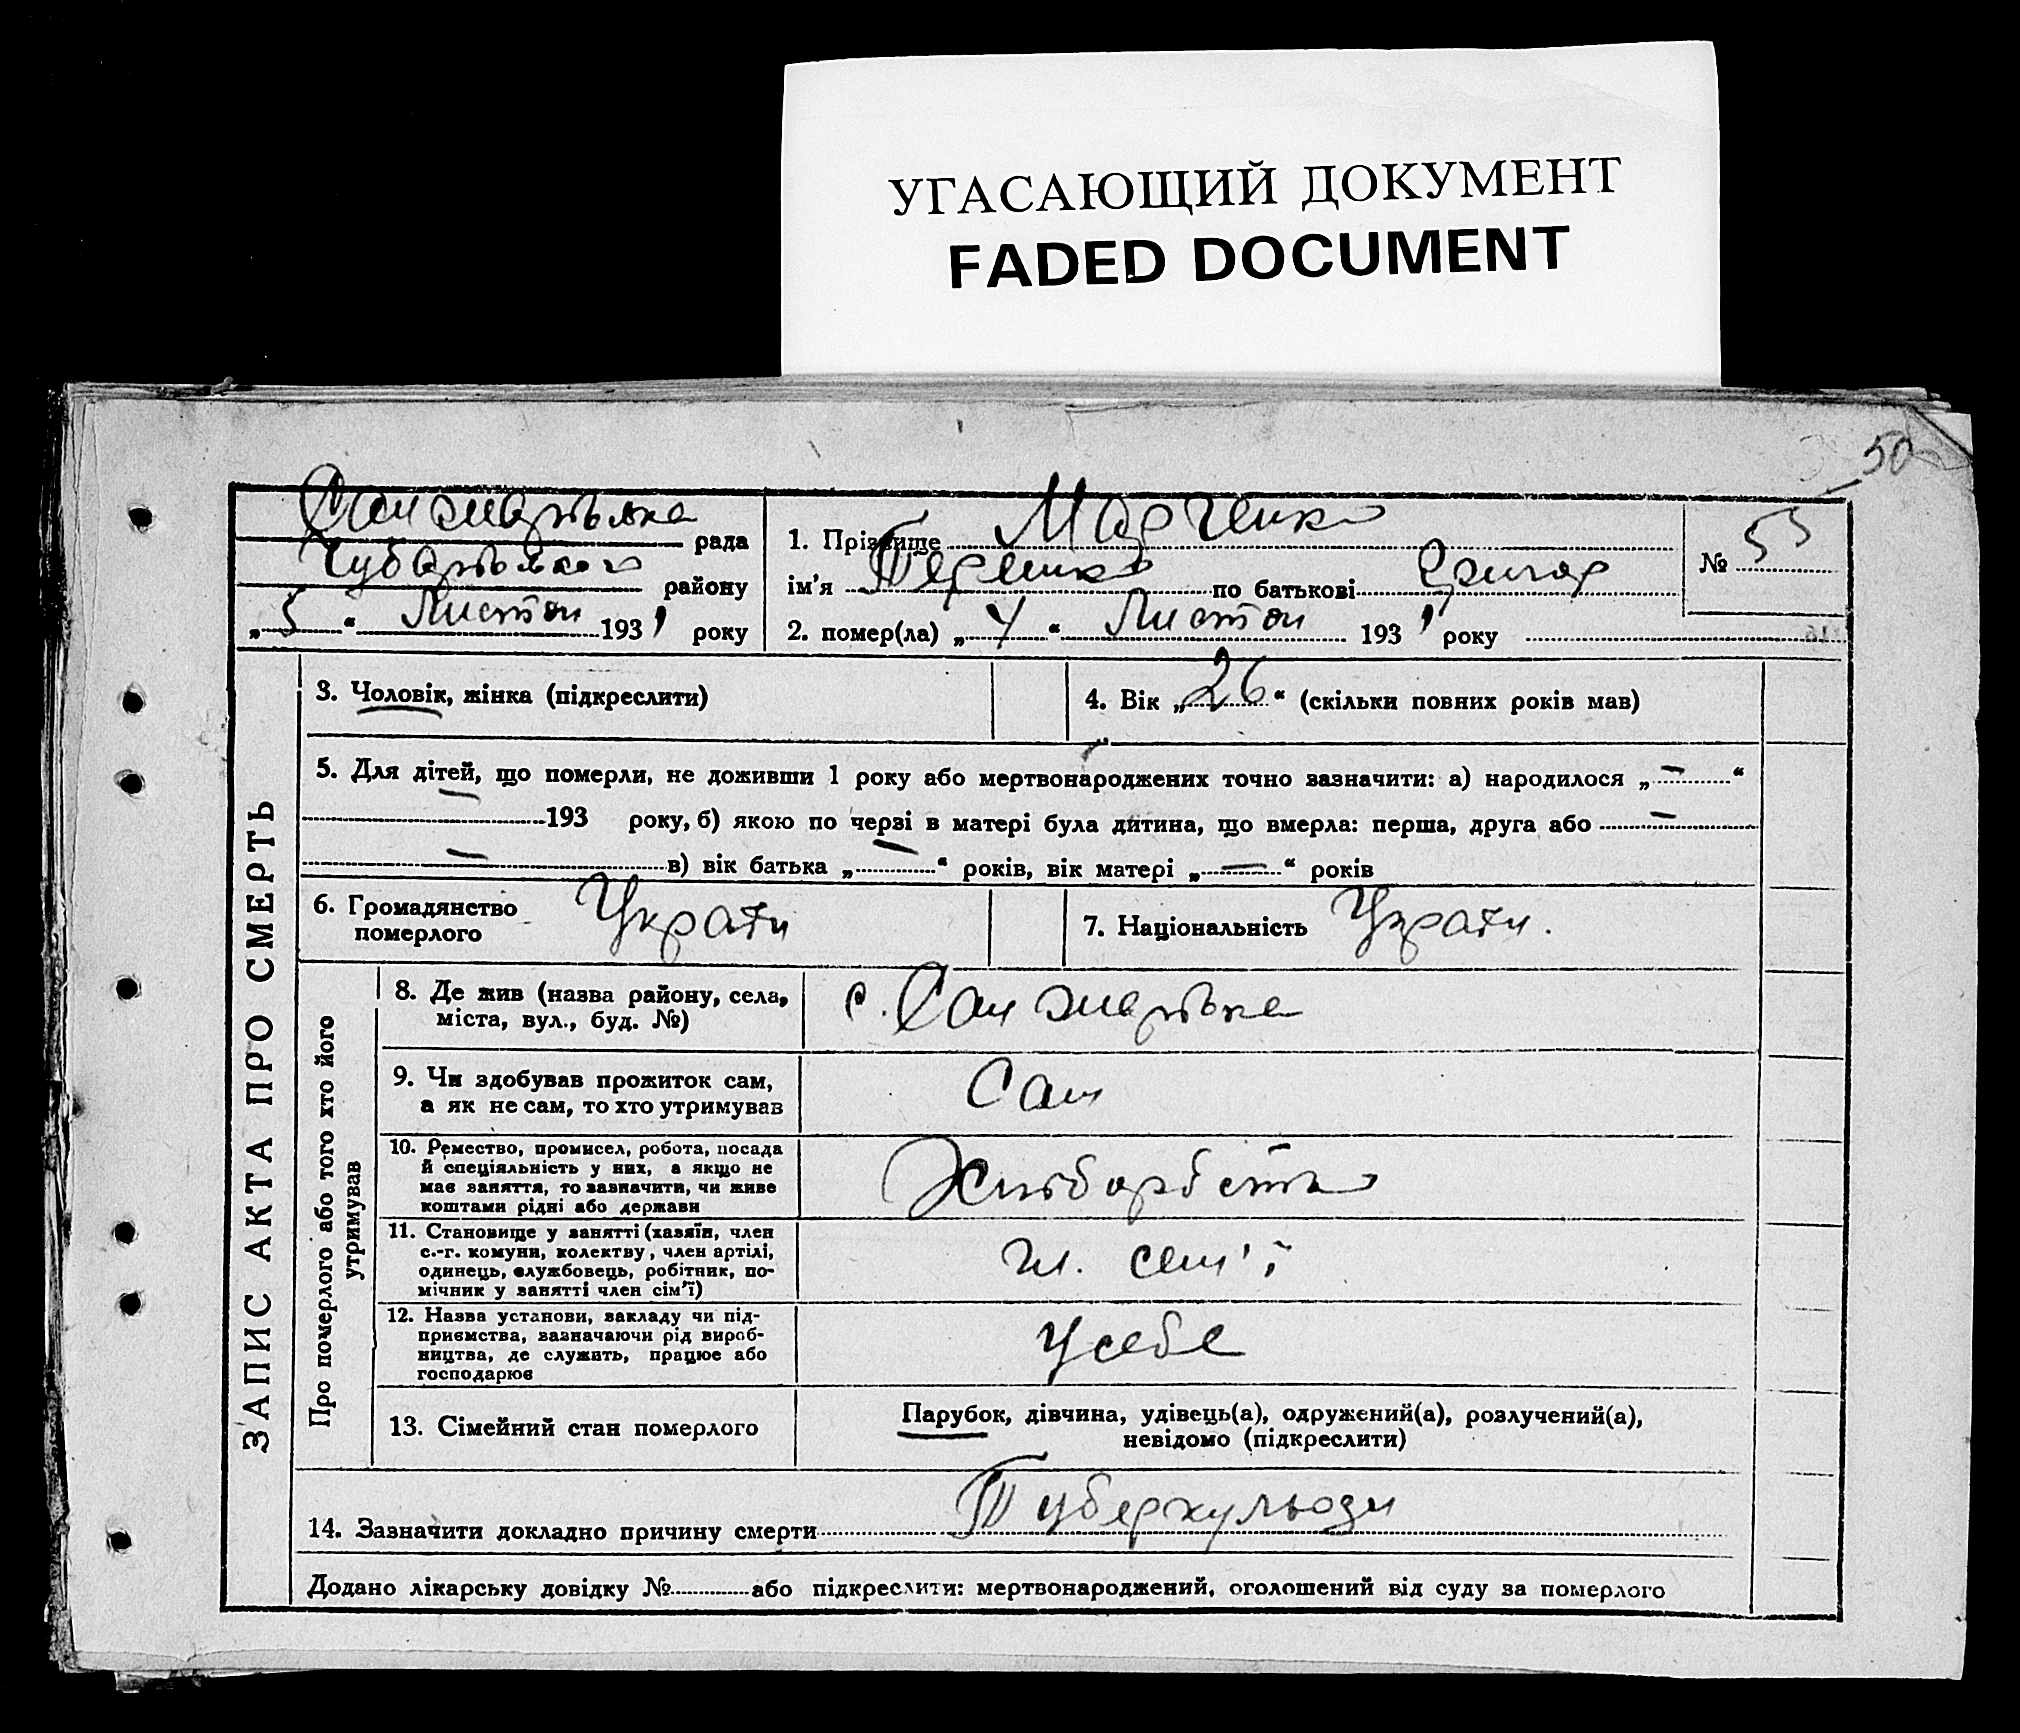 УГАСАЮЩИЙ ДОКУМЕНТ
FADED DOCUMENT
50
рада
району
„ 5 “ Листоп 1931 року
1. Прізвище Марченко
ім'я по батькові Григор
№ 55
2. помер(ла) „ 4 “ Листоп 1931 року
ЗАПИС АКТА ПРО СМЕРТЬ
3. Чоловік, жінка (підкреслити)
4. Вік „ 26 “ (скільки повних років мав)
5. Для дітей, що померли, не доживши 1 року або мертвонароджених точно зазначити: а) народилося „ — “
— 193 року, б) якою по черзі в матері була дитина, що вмерла: перша, друга або —
— в) вік батька „ — “ років, вік матері „ — “ років
6. Громадянство
померлого
Україн
7. Національність Україн.
Про померлого або того хто його
утримував
8. Де жив (назва району, села,
міста, вул., буд. №)
с.
9. Чи здобував прожиток сам,
а як не сам, то хто утримував
Сам
10. Ремество, промисел, робота, посада
й спеціяльність у них, а якщо не
має заняття, то зазначити, чи живе
коштами рідні або держави
Хліборобство
11. Становище у занятті (хазяїн, член
с.-г. комуни, колектву, член артілі,
одинець, службовець, робітник, по-
мічник у занятті член сім'ї)
чл. сем'ї
12. Назва установи, закладу чи під-
приємства, зазначаючи рід вироб-
ництва, де служить, працює або
господарює
У себе
13. Сімейний стан померлого
Парубок, дівчина, удівець(а), одружений(а), розлучений(а),
невідомо (підкреслити)
14. Зазначити докладно причину смерти Туберкульози
Додано лікарську довідку № або підкреслити: мертвонароджений, оголошений від суду за померлого